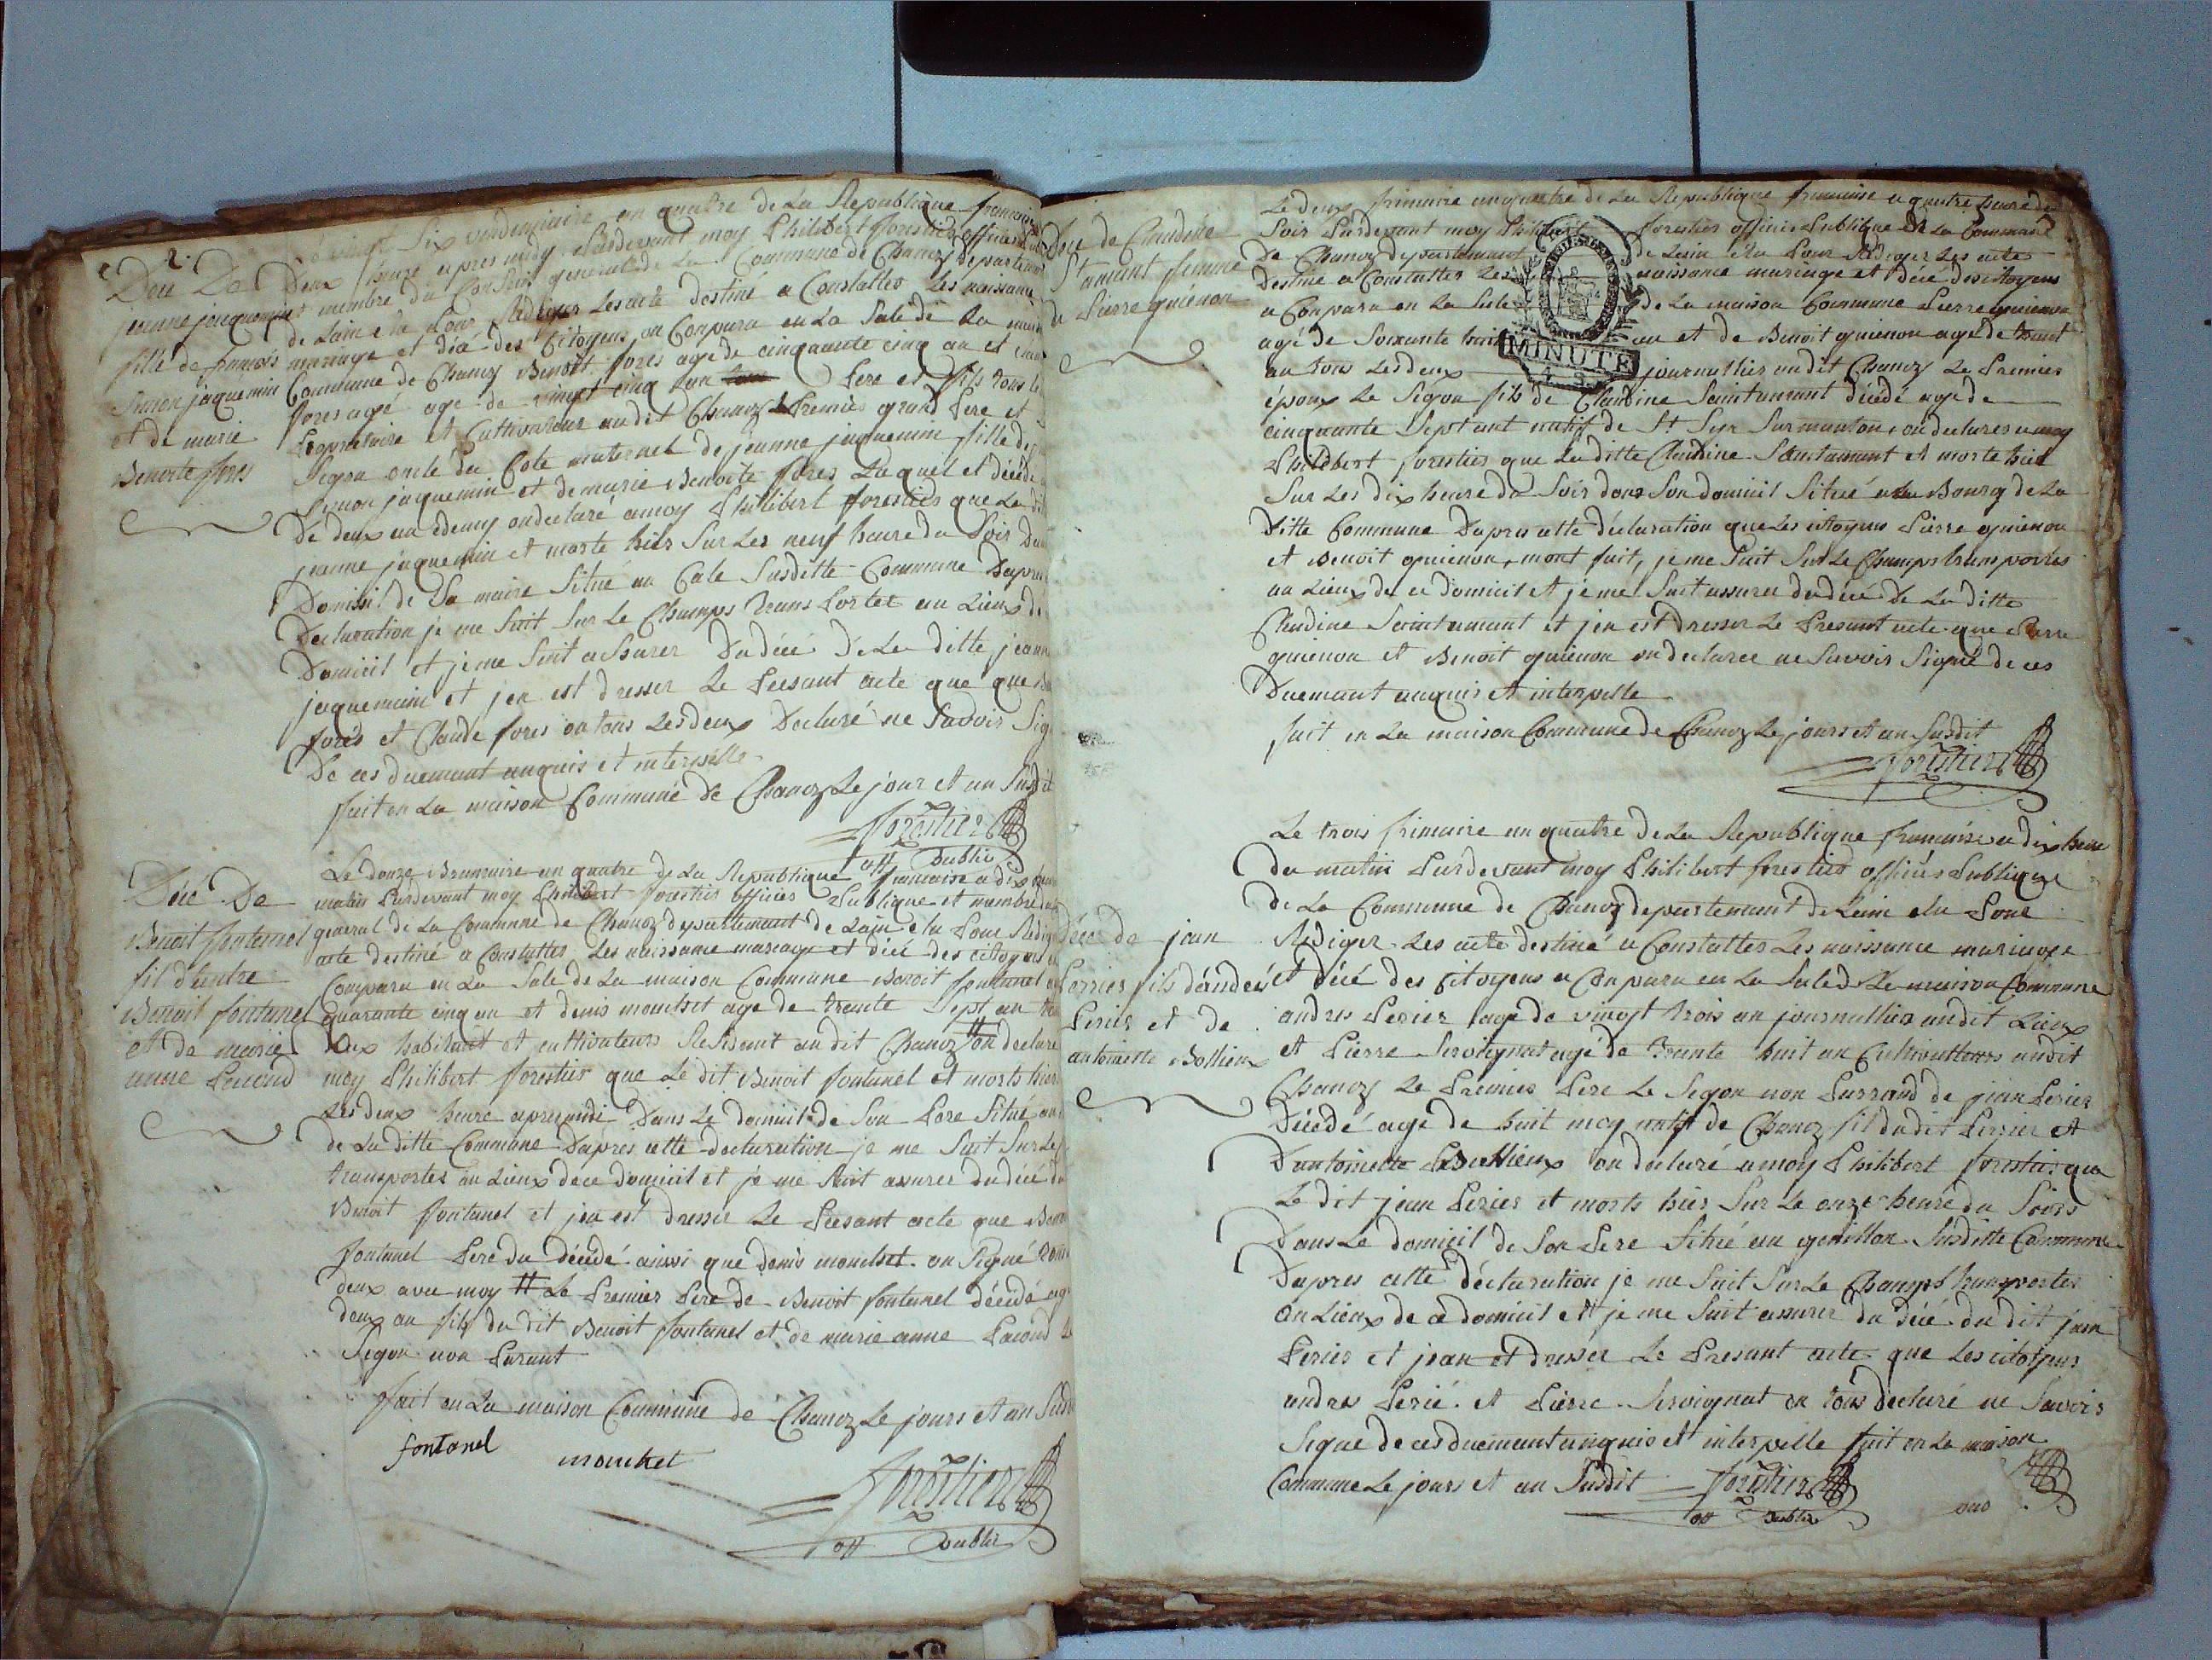 2.
Décé De
jeanne jaquemin
fille de francois
Simon jaquemin
et de marie
Benoite fores
Six vendemiaire an quatre de La Republique francaise
Deux heure apres midy Pardevant moy Philibert forestier officier
membre du Conseil general de La Commune de Chanoz departement
de Lain elu Pour Rediger Les acte destiné a Constatter Les naissance
mariage et décé des Citoyens on Conparu en La Sale de La maison
Commune de Chanoz Benoit fores age de cinquante cinq an et
fores agé age de vingt cinq an Pere et fils tous
Propriétaire et Cultivateur audit Chanoz Le Premier grand Pere et
Segon oncle du Coté maternel de jeanne jaquemin fille de
Simon jaquemin et de marie Benoite fores Laquel et décédé
De deux an edemy on declaré amoy Philibert forestier que La
jeanne jaquemin et morte hier Sur Les neuf heure du Soir Dans
Domicil de Sa maire Situé au Cale Susditte Commune Dapres
Declaration je me Suit Sur Le Champs trans Porter au Lieux de
Domicil et je me Suit assurer Du décé De La ditte jeanne
jaquemin et jen est dresser Le Present acte que que
fores et Claude fores on tous Les deux Declaré ne Savoir Sig
De ces duemant anquis et interpelle
fait en La maison Commune de Chanoz Le jour et an Susdit
forestier
off Public
Décé De
Benoit fontanel
fil d'entre
Benoit fontanel
et de marie
anne Pacoud
Le douze Brumaire an quatre de La Republique francaise a dix heure
matin Pardevant moy Philibert forestier officier Publique et membre
general de La Commune de Chanoz departement de Lain elu Pour Rediger
acte destiné a Constatter Les naissance mariage et décé des citoyens
Conparu en La Sale de La maison Commune Benoit fontanel
quarante cinq an et denis mouchet age de trente Sept an
deux habitant et cultivateurs Residant au dit Chanoz # on declaré
moy Philibert forestier que Le dit Benoit fontanel et morts hier
Les deux heure apres midi Dans Le domicil de Son Pere Situé au
de La ditte Commune Dapres cette declaration je me Suit Sur Le
transporter au Lieux de ce domicil et je me Suit assurer du décé du
Benoit fontanel et jen est dresser Le Present acte que Benoit
fontanel Pere du décédé ainsi que denis mouchet on Signé tous
deux avec moy # Le Premier Pere de Benoit fontanel décédé agé
deux an fils du dit Benoit fontanel et de marie anne Pacoud Le
Segon non Parant
fait en La maison Commune de Chanoz Le jours et an Susdit
fontanel
mouchet
forestier
off Public
Décé de Claudine
St amant femme
de Pierre guienon
Le deux frimaire an quatre de La Republique francaise a quatre heure du
Soir Pardevant moy Philibert forestier officier Publique de La Commune
De Chanoz departemant de Lain elu Pour Rediger Les acte
destiné a Constatter Les naissance mariage et décé des citoyens
a Conparu en La Sale de La maison Commune Pierre guienon
agé de Soixante huit an et de Benoit guienon age de trant
MINUTE
an tous Les deux journallier audit Chanoz Le Premier
époux Le Segon fils de Claudine Saintamant décédé age de
cinquante Sept ant natif de St Syr Surmanton on declarer a moy
Philibert forestier que La ditte Claudine Saintamant et morte hier
Sur Les dix heure du Soir dans Son domicil Situé au Bourg de La
Ditte Commune Dapres cette déclaration que Les citoyens Pierre guienon
et Benoit guienon, mont fait, je me Suit Sur Le Champs transporter
au Lieux de ce domicil et je me Suit assurer du décé de La ditte
Claudine Saintamant et jen est dresser Le Presant acte que Pierre
guienon et Benoit guienon on declarer ne Savoir Signé de ces
Duemant anquis et interpelle
fait en La maison Commune de Chanoz Le jours et an Susdit
forestier
décé de jean
Perrier fils déandré
Perier et de
antoinette Bollieux
Le trois frimaire an quatre de La Republique francaise a dix heure
du matin Pardevant moy Philibert forestier officier Publique
de La Commune de Chanoz departemant de Lain elu Pour
Rediger Les acte destiné a Constatter Les naissance mariage
et décé des Citoyens a Conparu en La Sale de La maison Commune
andres Perier age de vingt trois an journallier audit Lieux
et Pierre Servignat agé de trante huit an Cultivatteurs audit
Chanoz Le Premier Pere Le Segon non Parrand de jean Perier
Décédé age de huit moy natif de Chanoz fil dudit Perrier et
Dantoinette Bollieux on declaré a moy Philibert forestier que
Le dit jean Perier et morts hier Sur Le onze heure du Soirs
Dans Le domicil de Son Pere Situé au Susditte Commune
Dapres cette déclaration je me Suit Sur Le Champs transporter
au Lieux de ce domicil et je me Suit assurer du décé du dit jean
Perier et jean et dresser Le Presant acte que Les citoyens
andres Perié et Pierre Servignat on tous declaré ne Savoir
Signe de ces duemant anquis et interpelle fait en La maison
Commune Le jours et an Susdit
forestier
off Public